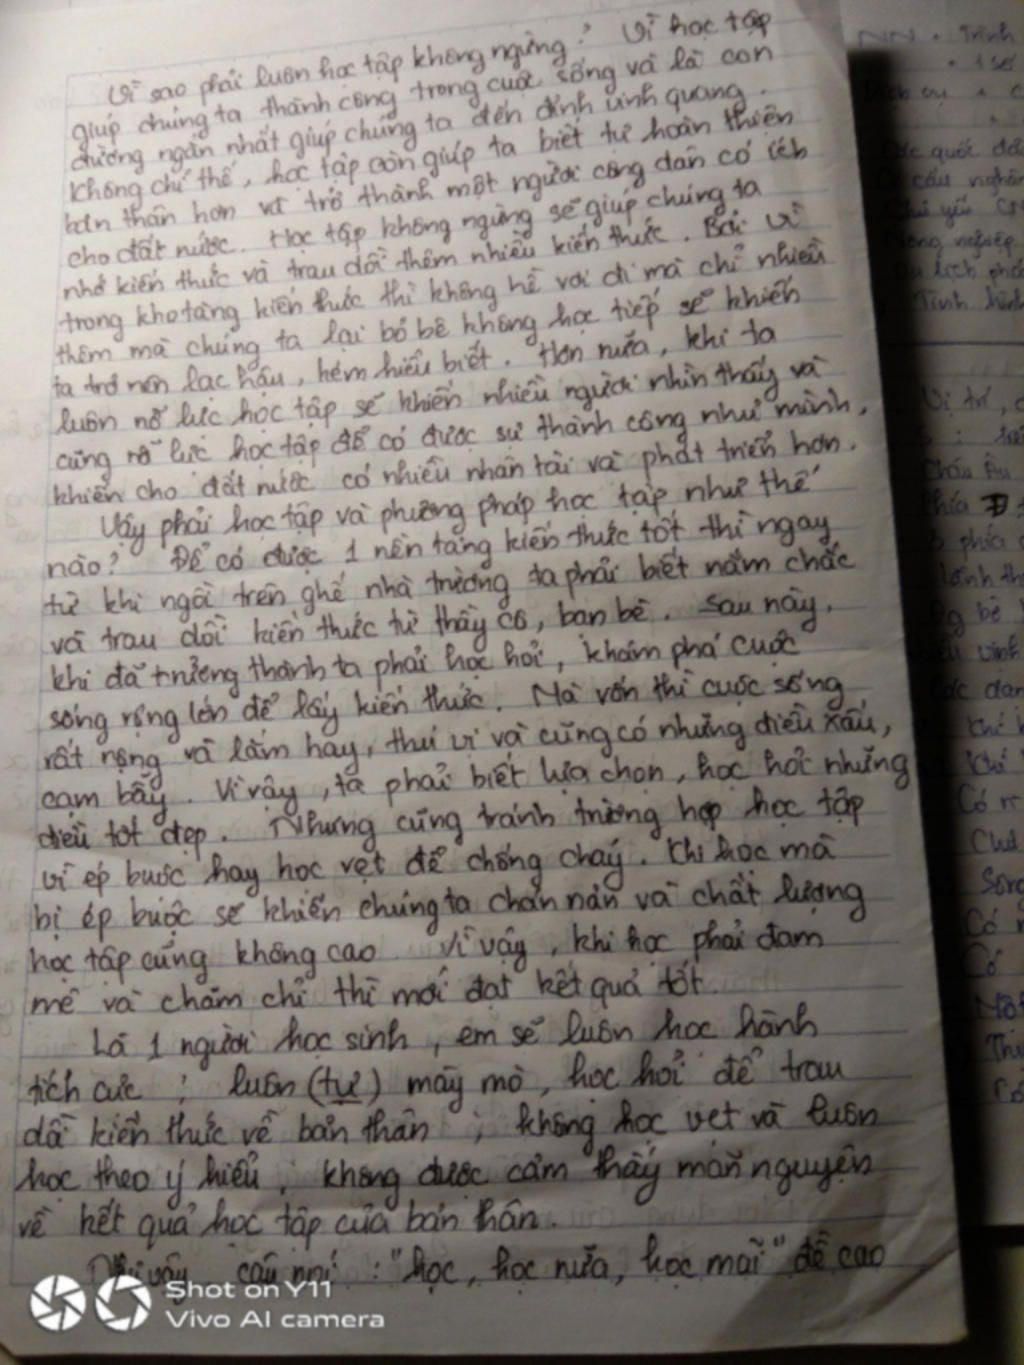 Vì sao phải luôn học tập không ngừng? Vì học tập
giúp chúng ta thành công trong cuộc sống và là con
đường ngắn nhất giúp chúng ta đến đỉnh vinh quang.
Không chỉ thế, học tập còn giúp ta biết tự hoàn thiện
bản thân hơn và trở thành một người công dân có ích
cho đất nước. Học tập không ngừng sẽ giúp chúng ta
nhớ kiến thức và trau dồi thêm nhiều kiến thức. Bởi vì
trong kho tàng kiến thức thì không hề vơi đi mà chỉ nhiều
thêm mà chúng ta lại bỏ bê không học tiếp sẽ khiến
ta trở nên lạc hậu, kém hiểu biết. Hơn nữa, khi ta
luôn nỗ lực học tập sẽ khiến nhiều người nhìn thấy và
cũng nỗ lực học tập để có được sự thành công như mình,
khiến cho đất nước có nhiều nhân tài và phát triển hơn.
Vậy phải học tập và phương pháp học tập như thế
nào? Để có được 1 nền tảng kiến thức tốt thì ngay
từ khi ngồi trên ghế nhà trường ta phải biết nắm chắc
và trau dồi kiến thức từ thầy cô, bạn bè. Sau này,
khi đã trưởng thành ta phải học hỏi, khám phá cuộc
sống rộng lớn để lấy kiến thức. Mà vốn thì cuộc sống
rất rộng và lắm hay, thú vị và cũng có những điều xấu,
cạm bẫy. Vì vậy, ta phải biết lựa chọn, học hỏi những
điều tốt đẹp. Nhưng cũng tránh trường hợp học tập
vì ép buộc hay học vẹt để chống cháy. Khi học mà
bị ép buộc sẽ khiến chúng ta chán nản và chất lượng
học tập cũng không cao. Vì vậy, khi học phải đam
mê và chăm chỉ thì mới đạt kết quả tốt.
Là 1 người học sinh, em sẽ luôn học hành
tích cực; luôn (tự) mày mò, học hỏi để trau
dồi kiến thức về bản thân; không học vẹt và luôn
học theo ý hiểu; không được cảm thấy mãn nguyện
về kết quả học tập của bản thân.
Như vậy câu nói: "học, học nữa, học mãi" đề cao
Shot on Y11
Vivo AI camera